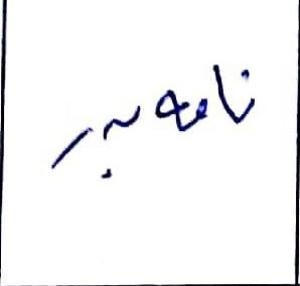 نامه بر